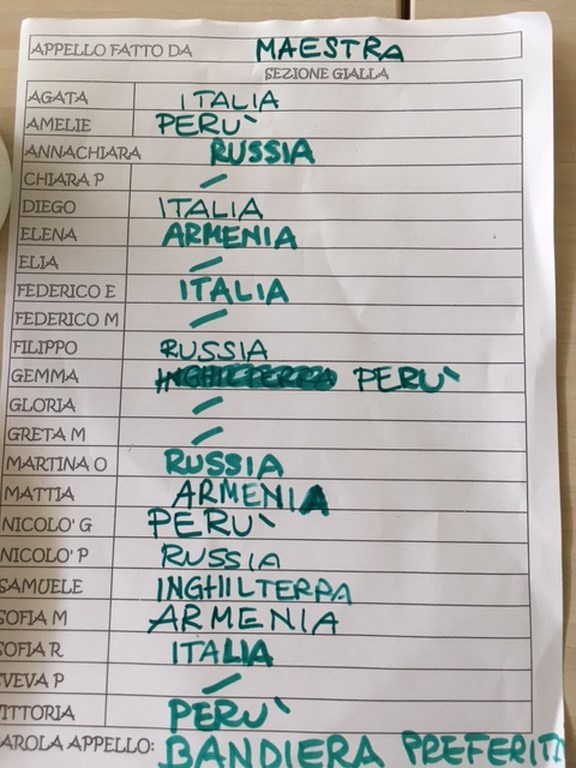 APPELLO FATTO DA MAESTRA
SEZIONE GIALLA
AGATA ITALIA
AMELIE PERU`
ANNACHIARA RUSSIA
CHIARA P /
DIEGO ITALIA
ELENA ARMENIA
ELIA /
FEDERICO E ITALIA
FEDERICO M /
FILIPPO RUSSIA
GEMMA INGHILTERRA PERU`
GLORIA /
GRETA M /
MARTINA O RUSSIA
MATTIA ARMENIA
NICOLO' G PERU`
NICOLO' P RUSSIA
SAMUELE INGHILTERRA
SOFIA M ARMENIA
SOFIA R ITALIA
VEVA P /
ITTORIA PERU`
AROLA APPELLO: BANDIERA PREFERIT